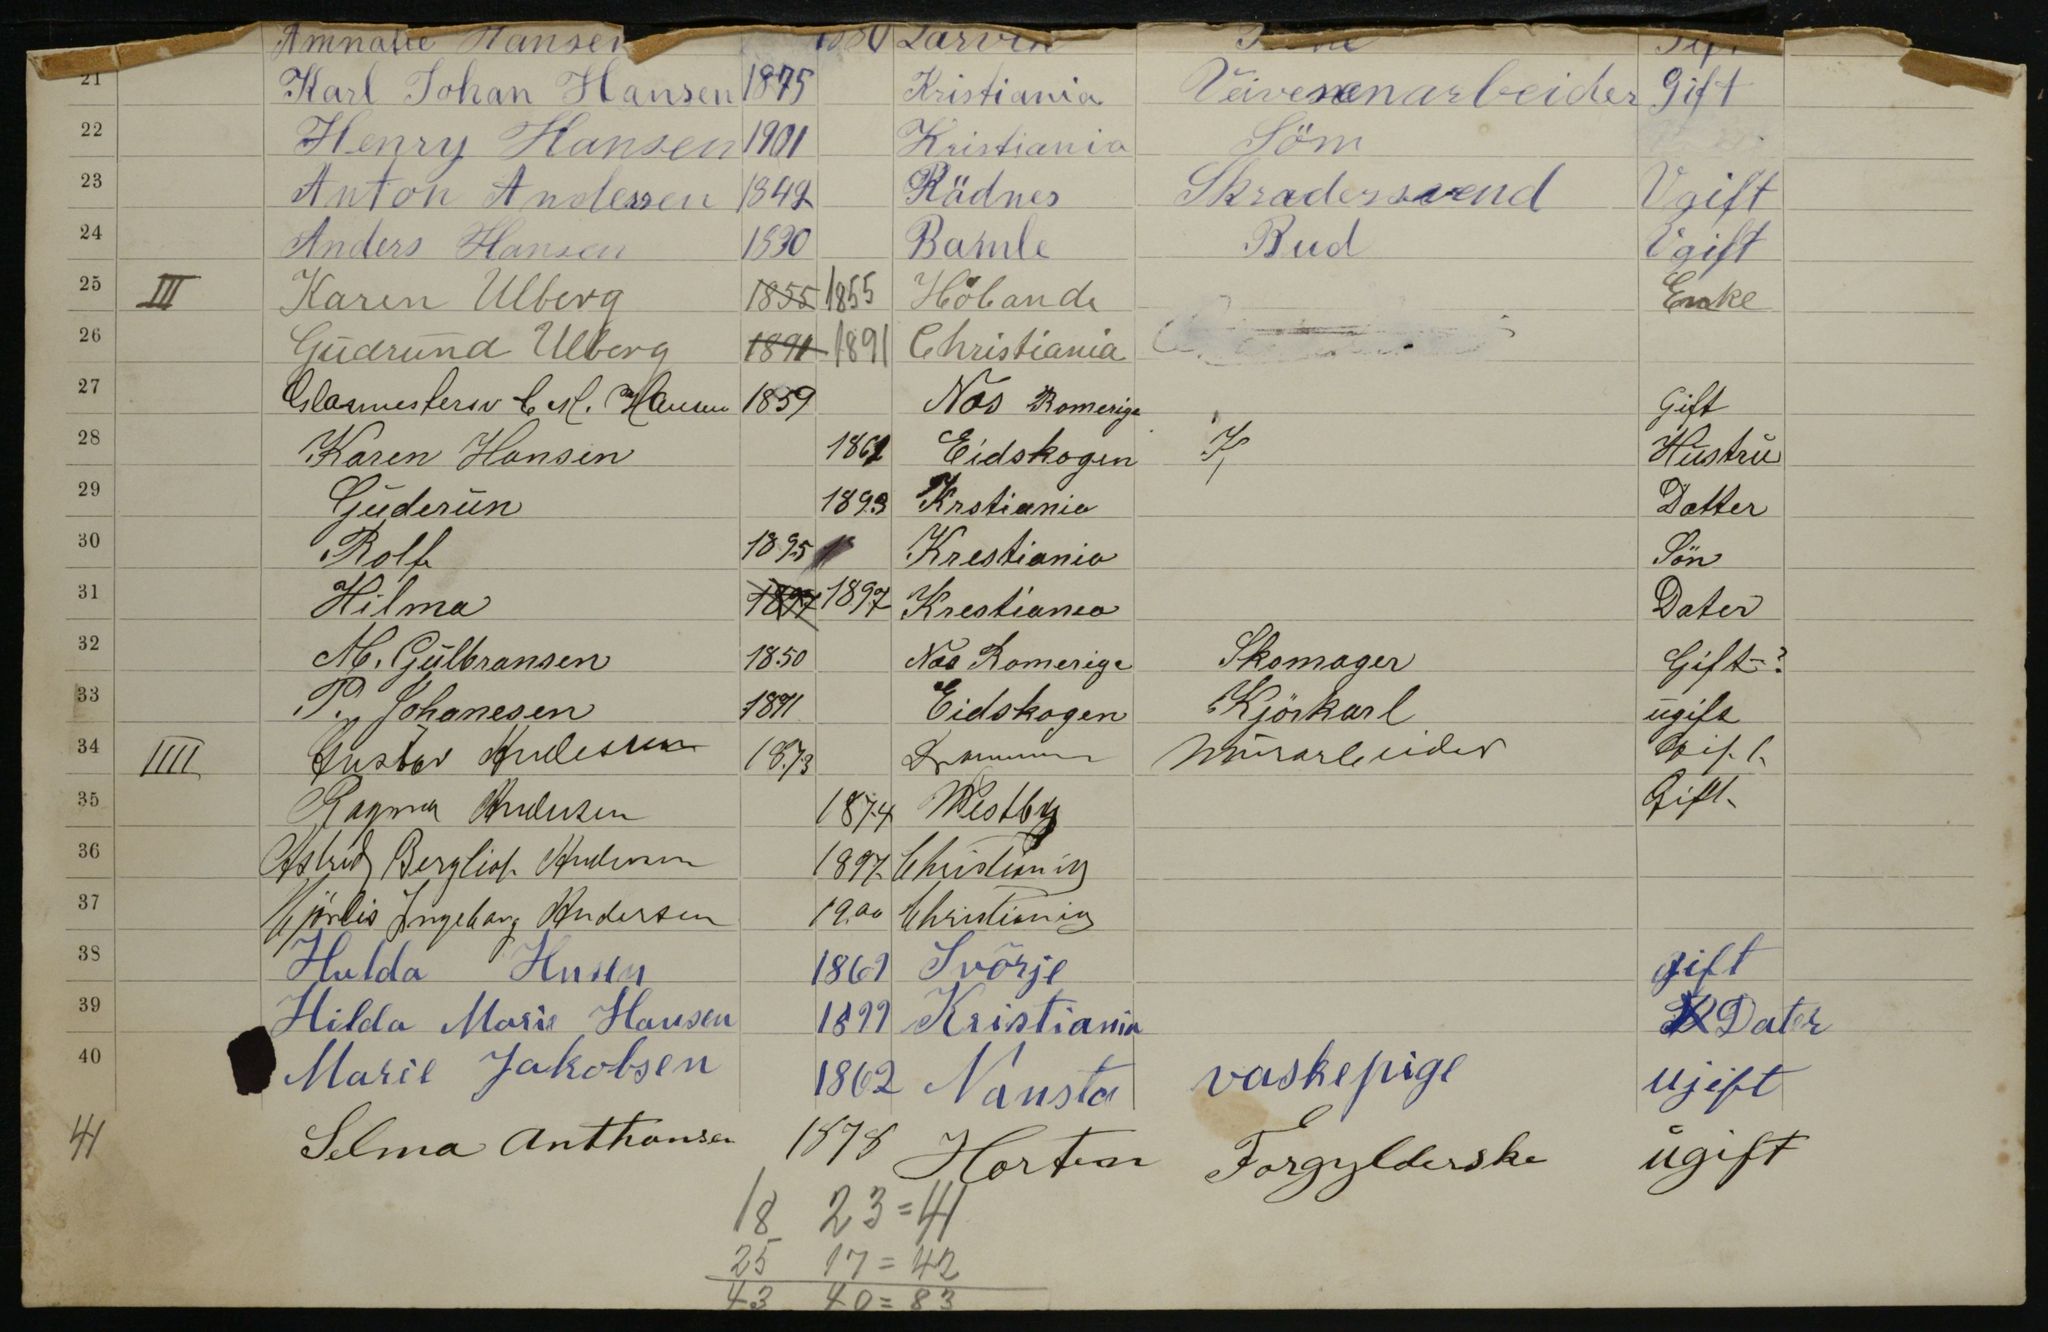 Hansen 1880 Larvik
21 Karl Johan Hansen 1875 Kristiania Veivesenarbeider Gift
22 Henry Hansen 1901 Kristiania Söm
23 Anton Andersen 1842 Rädnes Skradersvend Ugift
24 Anders Hansen 1830 Bamle Bud Ugift
25 III Karen Ulberg 1855 1855 Höland Enke
26 Gudrund Ulberg 1891 1891 Christiania
27 Glasmestersv C. M. Hansen 1859 Nas Romerige Gift
28 Karen Hansen 1861 Eidskogen Hustru
29 Guderun 1893 Krstiania Datter
30 Rolf 1895 Krestiania Sön
31 Hilma 1897 1897 Krestiania Dater
32 M. Gulbransen 1850 Nas Romerige Skomager Gift-?
33 P. Johanesen 1871 Eidskogen Kjörkarl ugift
34 IIII Gustav Andersen 1873 Drammen Murarbeider Gift
35 Ragna Andersen 1874 Westby Gift
36 Astrid Bergliot Andersen 1897 Christiania
37 Hjördis Ingeborg Andersen 1900 Christiania
38 Hulda Hnsen 1861 Svörje gift
39 Hilda Marie Hansen 1899 Kristiania Dater
40 Marie Jakobsen 1862 Nansta vaskepige ujift
41 Selma Anthonsen 1878 Horten Forgylderske ugift
18 23 = 41
25 17 = 42
43 40 = 83